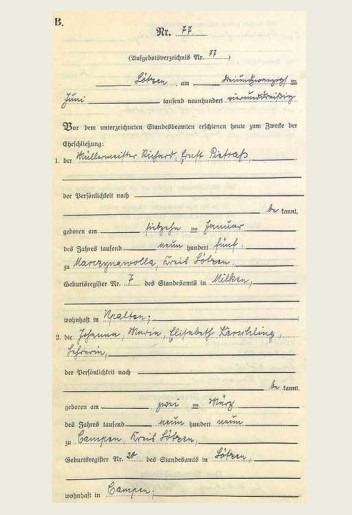 B.
Nr. 77
(Aufgebotsverzeichnis Nr. 77)
Lötzen, am neunundzwanzigsten
Juni tausend neunhundert vierunddreißig
Vor dem unterzeichneten Standesbeamten erschienen heute zum Zwecke der
Eheschließung:
1. der Müllermeister Richard, Ernst Pietraß,
der Persönlichkeit nach
be kannt,
geboren am siebzehn ten Januar
des Jahres tausend neun hundert fünf
zu Marczynawolla, Kreis Lötzen
Geburtsregister Nr. 7 des Standesamts in Milken,
wohnhaft in
2. die Johanna, Maria, Elisabeth
Lehrerin,
der Persönlichkeit nach
be kannt,
geboren am zwei ten März
des Jahres tausend neun hundert neun
zu Campen, Kreis Lötzen,
Geburtsregister Nr. 20 des Standesamts in Lötzen,
wohnhaft in Campen;